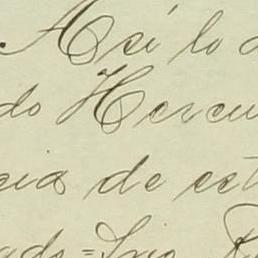 Así lo
do Hercu
cia de est
ado=Srio. R